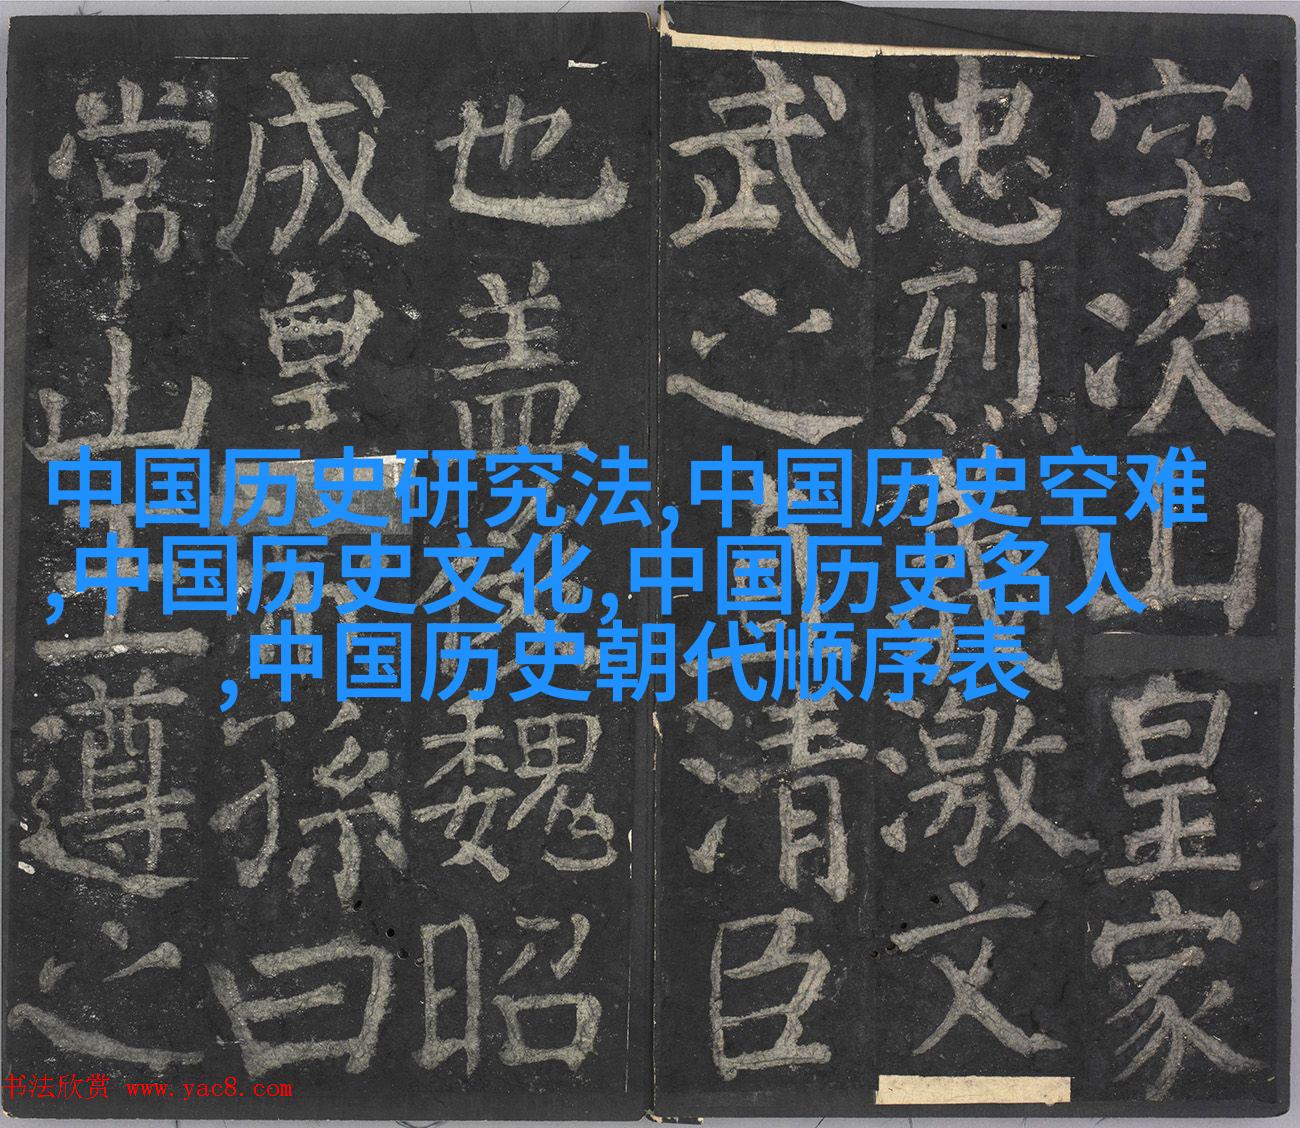 中国历史研究法,中国历史空难
,中国历史文化,中国历史名人
,中国历史朝代顺序表
字次山皇家
忠烈義激文
武之直清臣
也蓋後魏昭
成皇孫曰
常山王遵之
书法欣赏 www.yac8.com